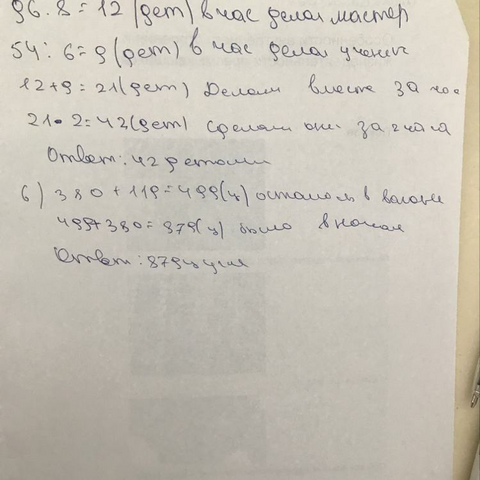 96:8=12 (дет) в час делал мастер
54:6=9 (дет) в час делал ученик
12+9=21 (дет) Делали вместе за час
21•2=42 (дет) сделали они за 2 часа
Ответ: 42 детали
6) 380+119=499(ц) осталось в вагоне
499+380=879(ц) было в начале
Ответ: 879ц угля